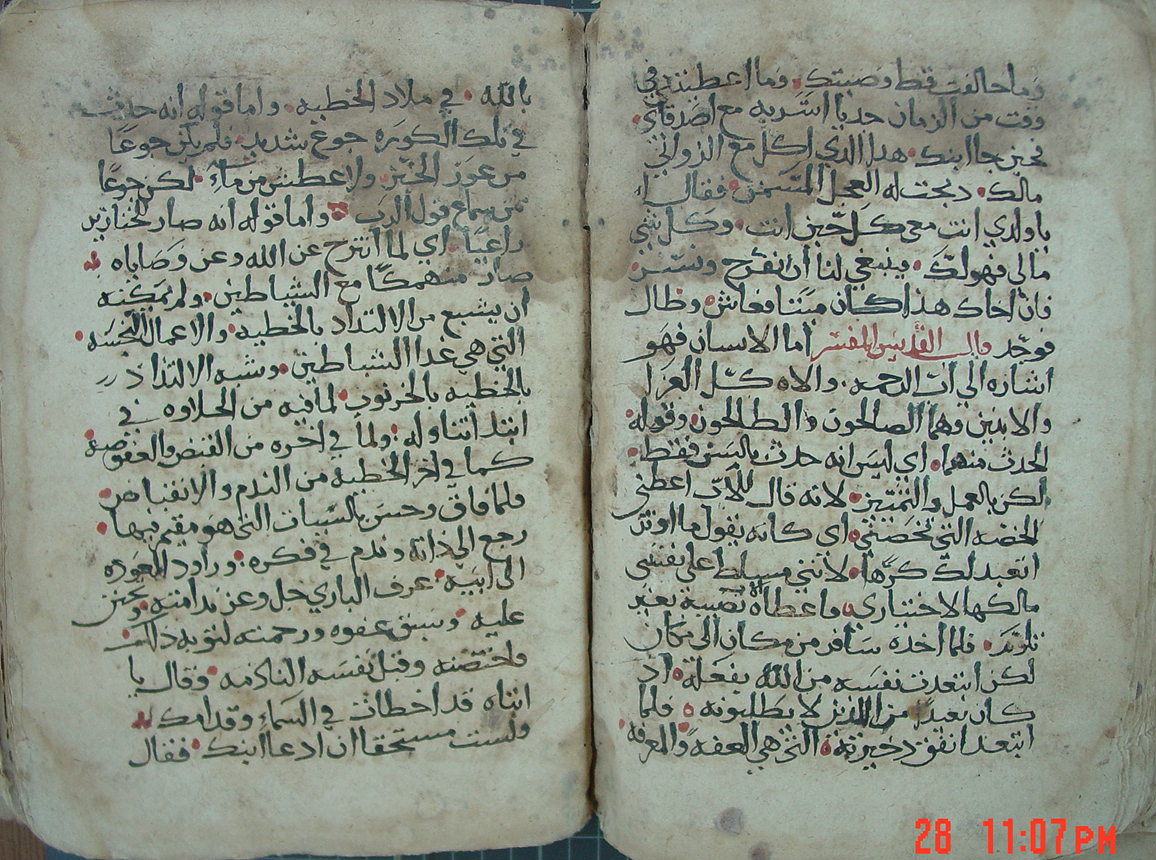 وما خالفت قط وصيتك وما اعطيتني في
وقت من الزمان جديا اسر به مع اصدقاي
فحين جا ابنك هذا الذي اكل مع الزواني
مالك دبحت له العجل المسمن فقال له
يا ولدي انت معي كل حين انت وكل شي
مالي فهو لك ينبغي لنا ان نفرح ونسر
فان اخاك هذا كان ميتا فعاش وضال
فوجد قال القديس المفسر اما الانسان فهو
اشاره الي اب الرحمه والاه كل العزا
والابنين وهما الصالحون والطالحون وقوله
الحدث منهما اي ليس انه حدث بالسن فقط
لكن بالعمل والتميز لانه قال للاب اعطني
الحصه التي تخصني اي كانه يقول ما اوثر
اتعبد لك كرها لانني مسلط على نفسي
مالكها لاختياري واعطاه نصيبه بغير
فلما اخده سافر من مكان الى مكان
لكن ابتعدت نفسه من الله بفعله اد
كان بعيدا من الذين لا يطلبونه فلما
ابتعد انفق دخيرته التي هي العفه والمعرفه
بالله في ملاد الخطيه واما قوله انه حدث
في تلك الكوره جوع شديد فلم يكن جوعا
من عوز الخبز ولا عطش من ماء لكن جوعا
من سماع قول الرب واما قوله انه صار لخنازير
راعيا اي لما انتزح عن الله وعن وصاياه
صار منهمكا مع الشياطين ولم تمكنه
ان يشبع من الالتداد بالخطيه والاعمال النجسه
التي هي غدا الشياطين وشبه الالتداد
بالخطيه بالخرنوب لما فيه من الحلاوه في
ابتدا تناوله ولما في اخره من القبض والعفوصه
كما في اخر الخطيه من الندم والانقباض
فلما فاق وحس بالسيات التي هو مقيم فيها
رجع الي ذاته وندم في فكره وراود العوده
الى ابيه عرف الباري جل وعز ندامته وتحنن
عليه وسبق بعفوه ورحمته لتوبه ذلك
واحتضنه وقبل نفسه النادمه وقال يا
ابتاه قد اخطات في السماء وقدامك
ولست مستحقا ان ادعا ابنك فقال
28 11:07 PM